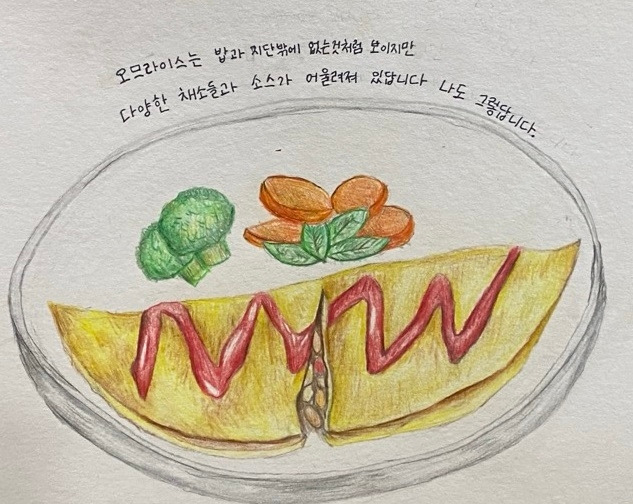 오므라이스는 밥과 지단밖에 없는것처럼 보이지만
다양한 채소들과 소스가 어울려져 있답니다 나도 그렇답니다.